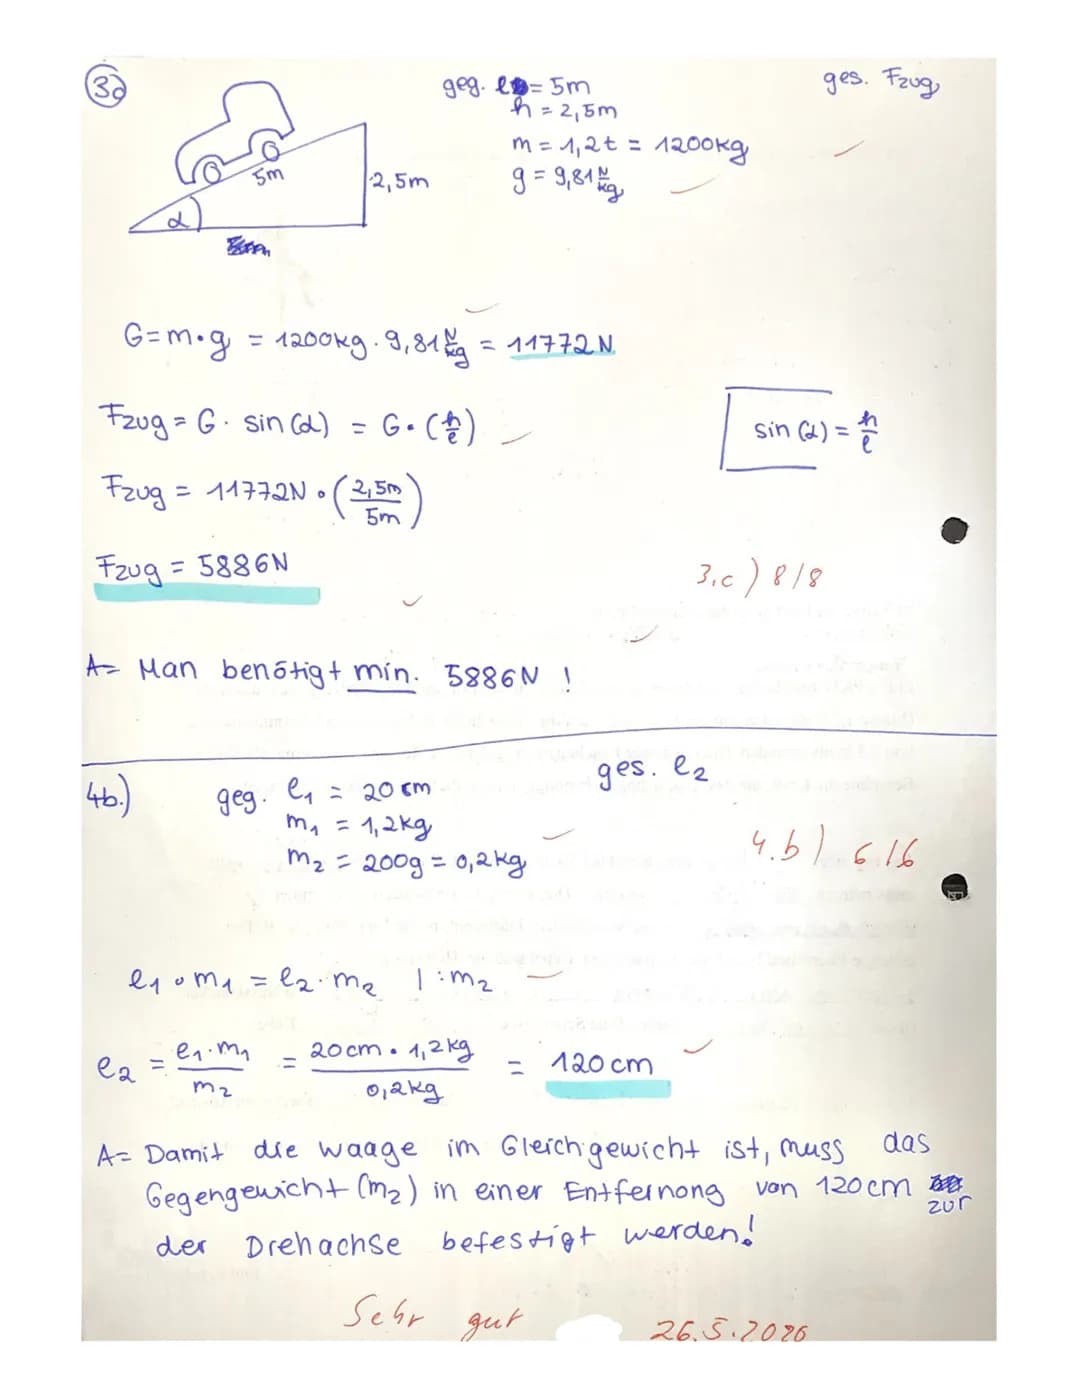 3c
geg. l = 5m
ges. Fzug
h = 2,5m
m = 1,2t = 1200kg
g = 9,81 N/kg
5m
2,5m
α
G = m·g = 1200kg · 9,81 N/kg = 11772 N
Fzug = G · sin(α) = G · (h/l)
sin(α) = h/l
Fzug = 11772N · (2,5m/5m)
Fzug = 5886N
3.c) 8/8
A= Man benötigt min. 5886N !
4b.)
geg. l₁ = 20 cm
ges. l₂
m₁ = 1,2kg
m₂ = 200g = 0,2kg
4.b) 6/6
l₁ · m₁ = l₂ · m₂ | :m₂
l₂ = l₁·m₁/m₂ = 20cm · 1,2kg/0,2kg = 120cm
A= Damit die waage im Gleichgewicht ist, muss das
Gegengewicht (m₂) in einer Entfernong von 120cm
zur
der Drehachse befestigt werden!
Sehr gut
26.5.2020